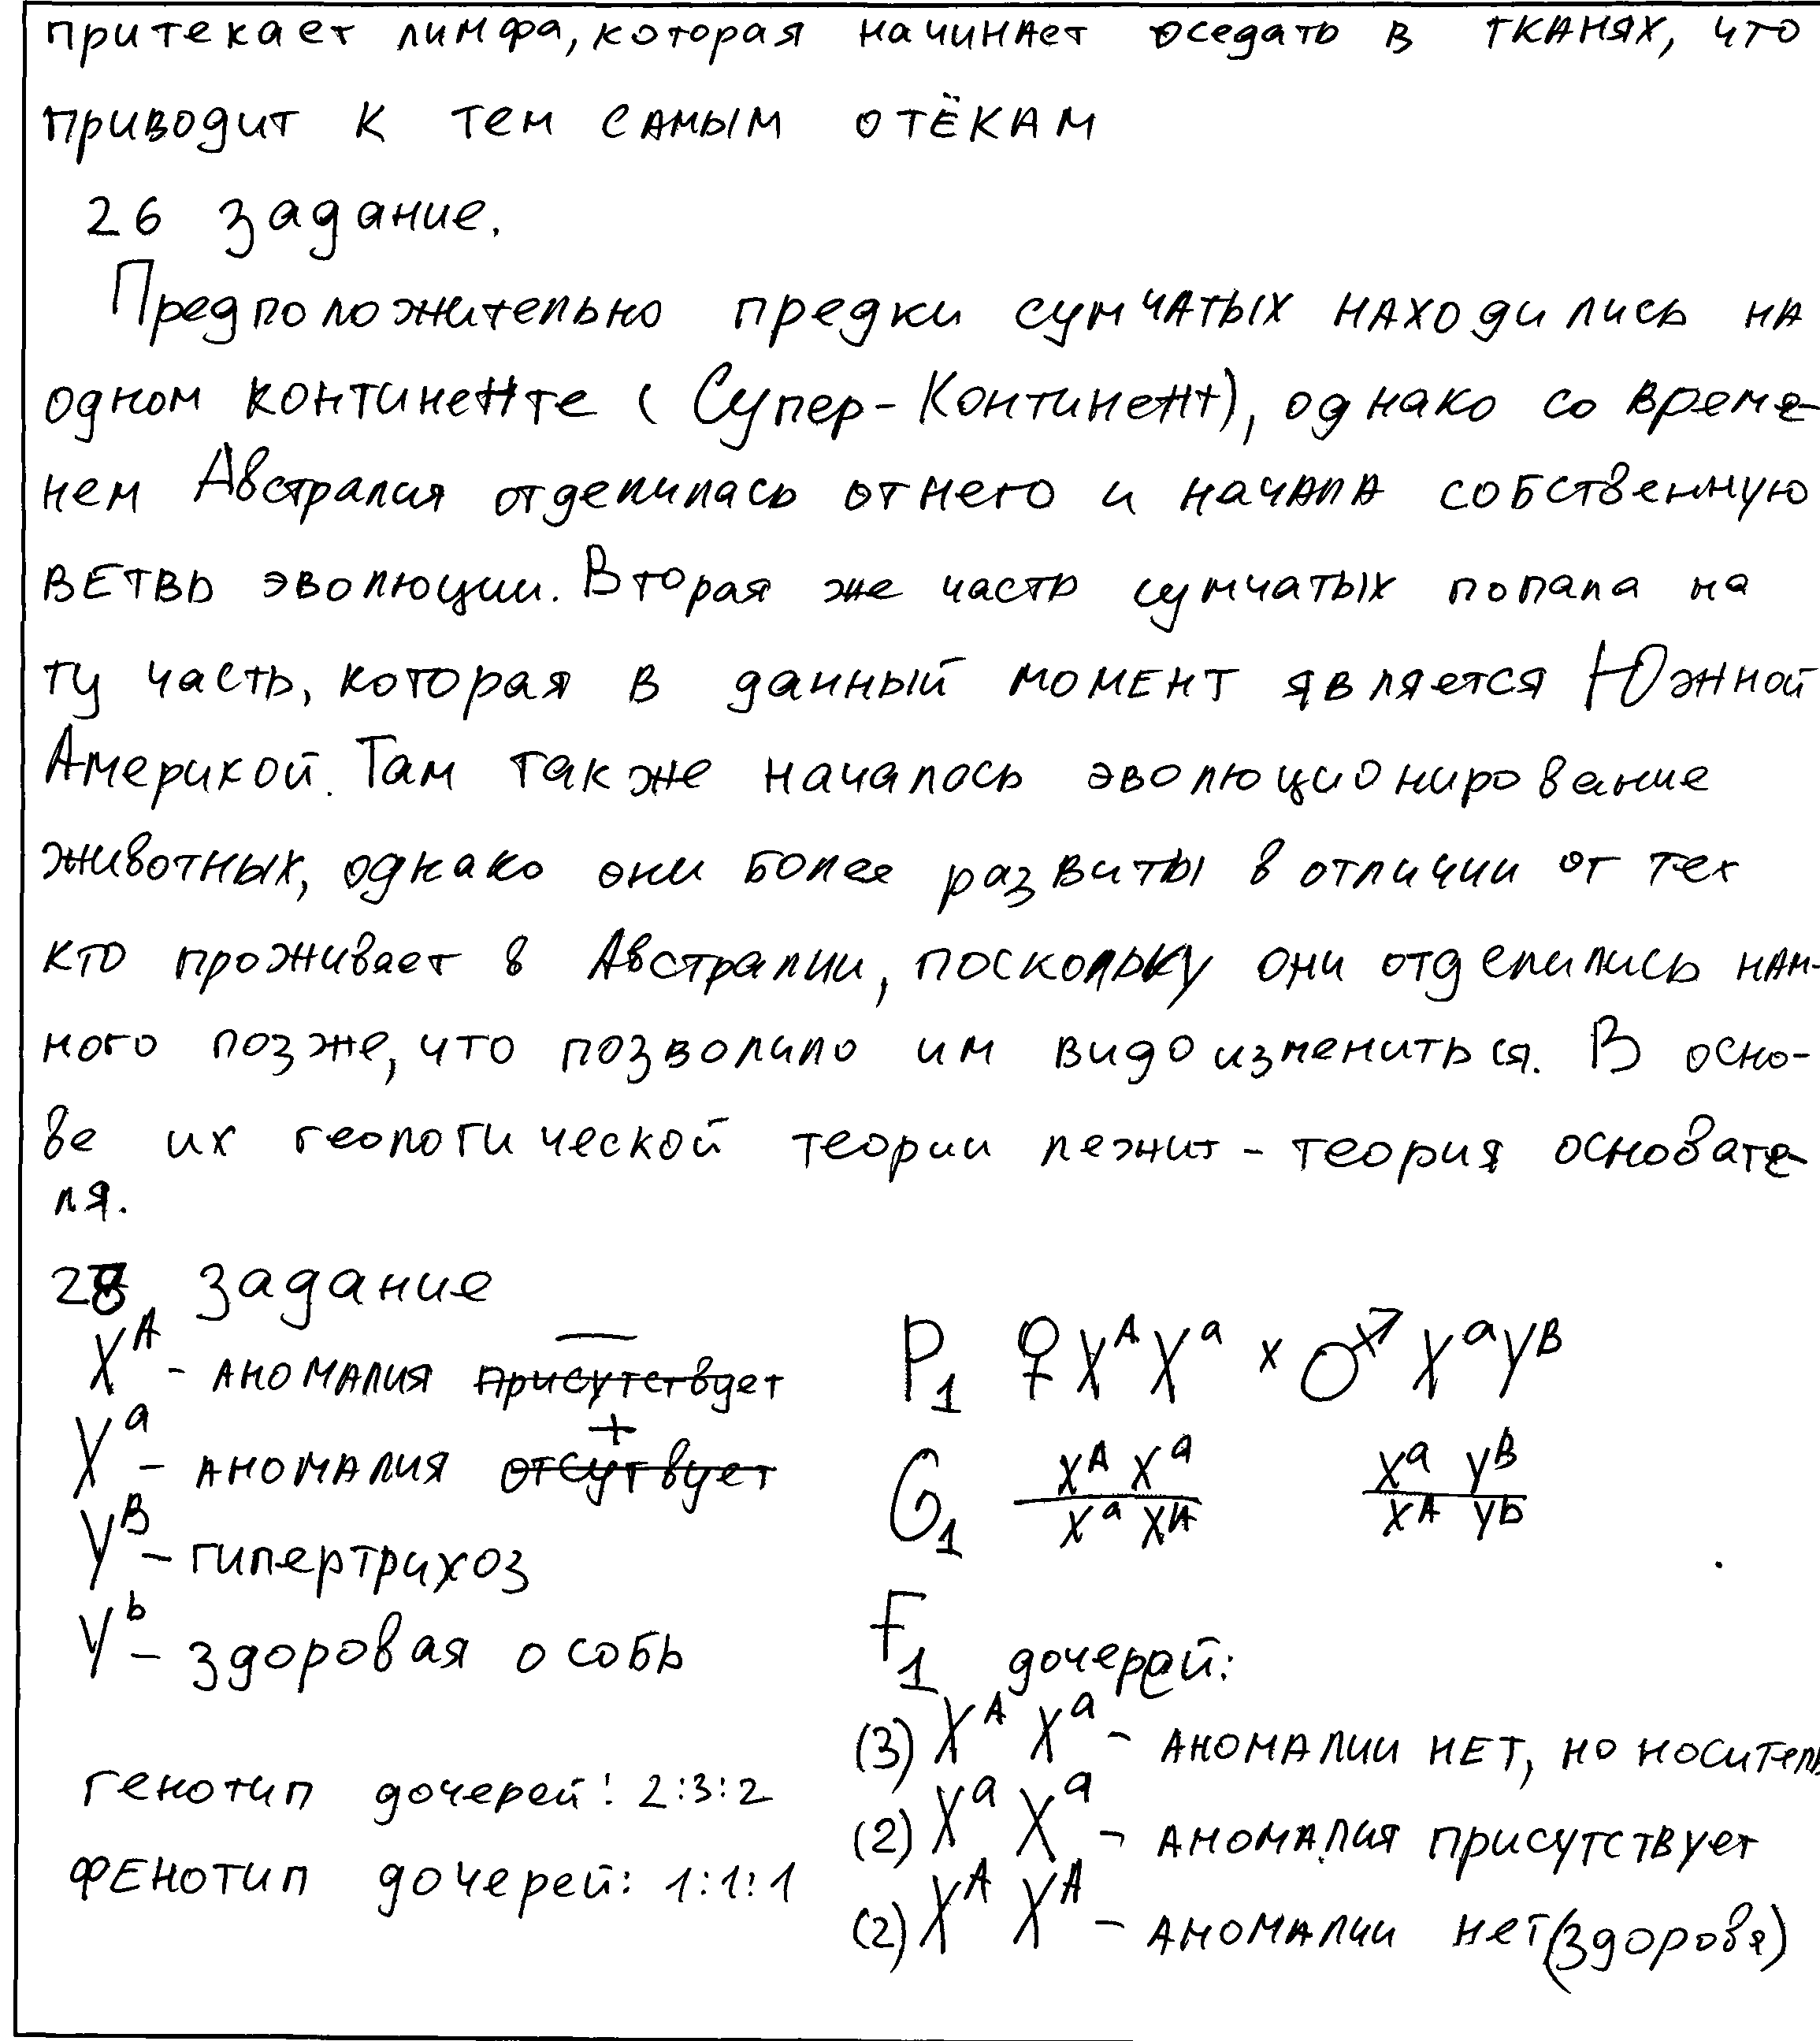 притекает лимфа, которая начинает оседать в тканях, что
приводит к тем самым отёкам
26 задание.
Предположительно предки сумчатых находились на
одном континенте (Супер-Континент), однако со време-
нем Австралия отделилась от него и начала собственную
ветвь эволюции. Вторая же часть сумчатых попала на
ту часть, которая в данный момент является Южной
Америкой. Там также началось эволюционирование
животных, однако они более развиты в отличии от тех
кто проживает в Австралии, поскольку они отделились нам-
ного позже, что позволило им видоизмениться. В осно-
ве их геологической теории лежит - теория основате-
ля.
28 задание
X^A - аномалия присутствует –
X^a - аномалия отсутвует +
Y^B - гипертрихоз
Y^b - здоровая особь
генотип дочерей: 2:3:2
фенотип дочерей: 1:1:1
P1 ♀ X^A X^a × ♂ X^a Y^B
G1 X^A X^a / X^a X^A X^a Y^B / X^A Y^b
F1 дочерей:
(3) X^A X^a - аномалии нет, но носитель
(2) X^a X^a - аномалия присутствует
(2) X^A X^A - аномалии нет (здоровя)